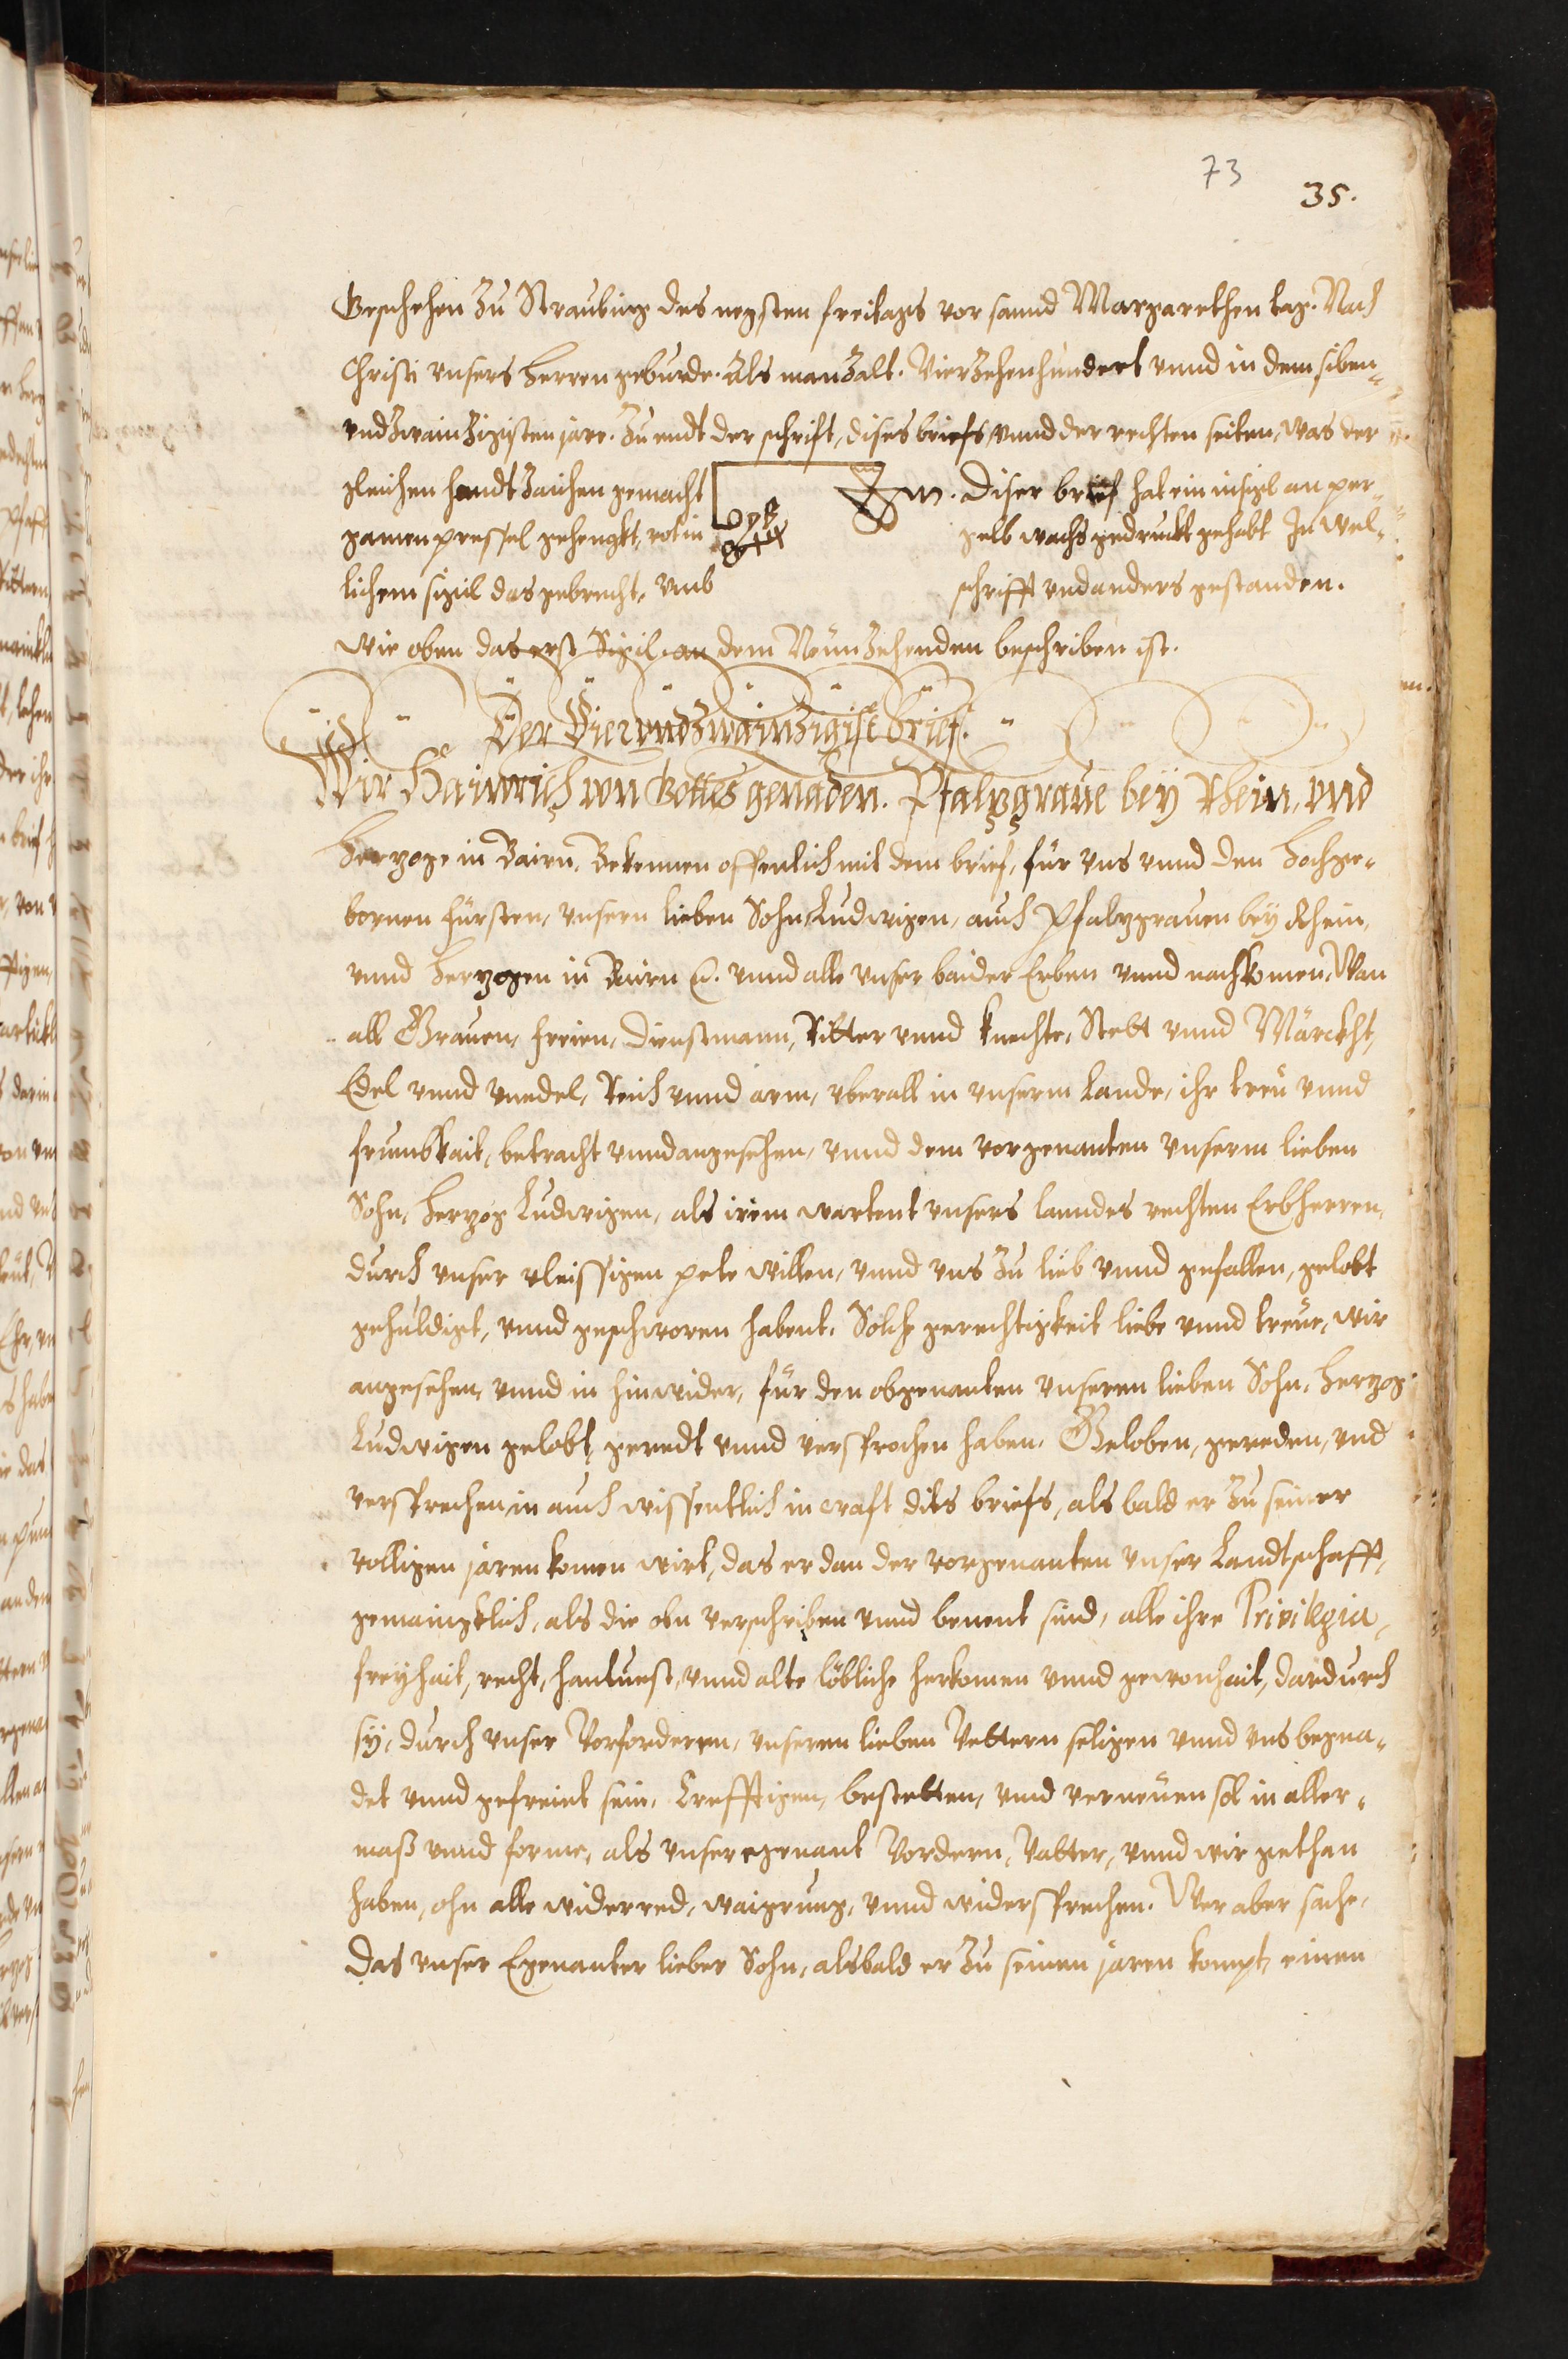 73
35.
Geschehen zu Straubing des negsten freitags vor sannd Margarethen tag. Nach
Christi vnsers Herren geburde. Als man zalt. Vierzehenhundert vnnd in dem siben-
vndzwainzigisten jare. Zu endt der schrift, dises briefs vnnd der rechten seiten, was der
gleichen handtzaichen gemacht m. Diser brief hat ein insigl an per-
gamen pressel gehengkt, rot in gelb wachs gedruckt gehabt In wel-
lichem sigil das gebrecht, vmb schrifft vnd anders gestanden.
wie oben das erst Sigil an dem Neünzehenden beschriben ist.
Der Vierundzwainzigist Brief.
Wir Hainrich von Gottes genaden. Pfalzgraue bey Rhein, vnd
Herzoge in Bairn, Bekennen offenlich mit dem brief, für vns vnnd den Hochge-
bornen Fürsten, vnsern lieben Sohn Ludwigen, auch Pfalzgrauen bey Rhein,
vnnd Herzogen in Bairn &. vnnd alle vnser baider Erben vnnd nachkomen, Wan
all Grauen, freien, Dienstmann, Ritter vnnd knechte, Stett vnnd Märckht,
Edel vnnd vnedel, Reich vnnd arm, vberall in vnserm Lande, ihr treü vnnd
frumbkait, betracht vnnd angesehen, vnnd dem vorgenanten vnserm lieben
Sohn, Herzog Ludwigen, als irem wartent vnsers lanndes rechten Erbherren,
durch vnser vleissigen pete willen, vnnd vns zu lieb vnnd gefallen, gelobt
gehuldigt, vnnd geschworen habent. Solche gerechtigkeit liebe vnnd treüe, wir
angesehen, vnnd in hinwider, für den obgenanten vnseren lieben Sohn, Herzog
Ludwigen gelobt, geredt vnnd versprochen haben. Geloben, gereden, vnd
versprechen in auch wissentlich in craft dits briefs, als bald er zu seiner
volligen jaren komen wirt, das er dan der vorgenanten vnser Landtschafft,
gemaingklich, als die obn verschriben vnnd benent sind, alle ihre Privilegia,
freyhait, recht, hantuest, vnnd alte löbliche herkomen vnnd gewonhait, dardurch
sy, durch vnser Vorforderen, vnseren lieben Vettern seligen vnnd vns begna-
det vnnd gefreiet sein, Crefftigen, bestetten, vnnd verneüen sol in aller-
maß vnnd forme, als vnser egenant Vordern, Vatter, vnnd wir gethan
haben, ohn alle widerred, waigrung, vnnd widersprechen. Wer aber sache,
das vnser Egenanter lieber Sohn, alsbald er zu seinen jaren kompt, einen